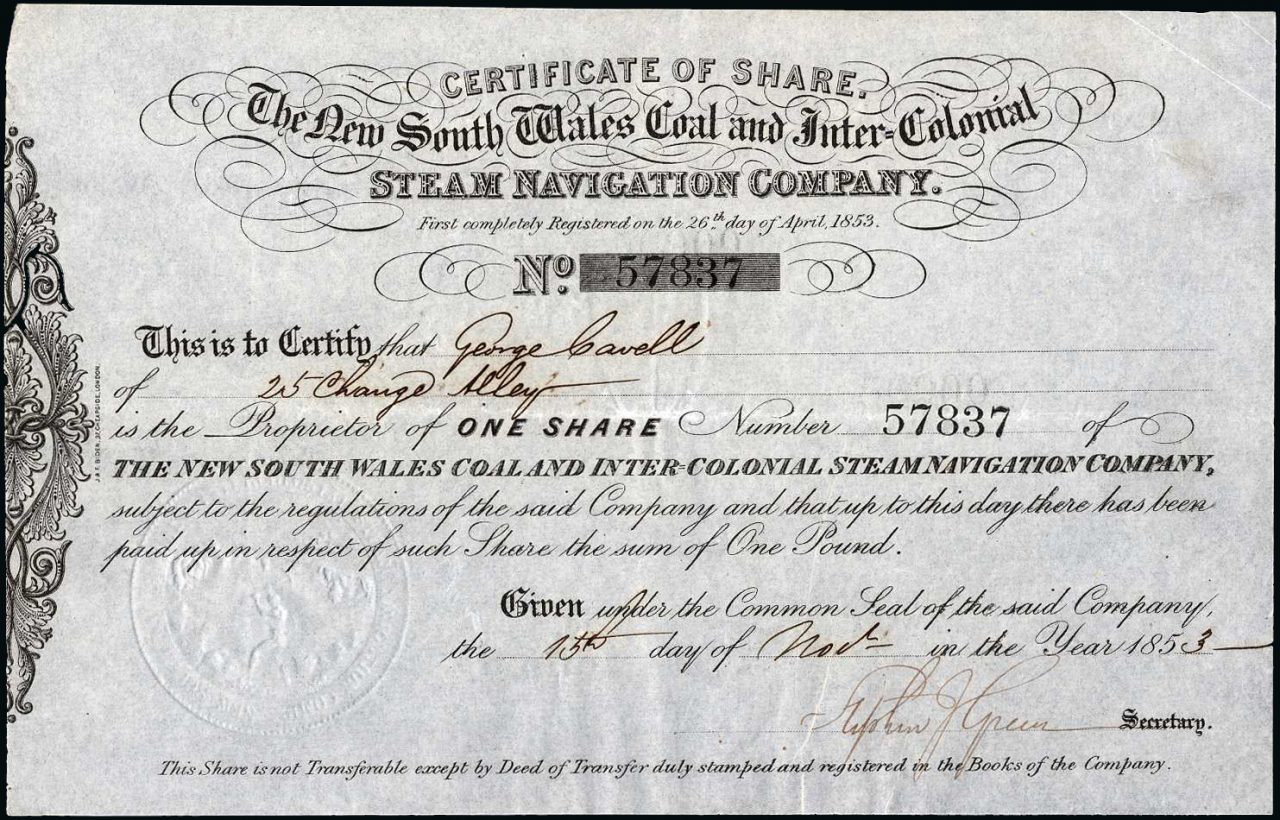 CERTIFICATE OF SHARE.
The New South Wales Coal and Inter=Colonial
STEAM NAVIGATION COMPANY.
First completely Registered on the 26th day of April, 1853.
No. 57837
This is to Certify that George Cavell
of 25 Change Alley
is the Proprietor of ONE SHARE Number 57837 of
THE NEW SOUTH WALES COAL AND INTER=COLONIAL STEAM NAVIGATION COMPANY,
subject to the regulations of the said Company and that up to this day there has been
paid up in respect of such Share the sum of One Pound.
Given under the Common Seal of the said Company,
the 15th day of Novr in the Year 1853
Stephen J Green Secretary.
This Share is not Transferable except by Deed of Transfer duly stamped and registered in the Books of the Company.